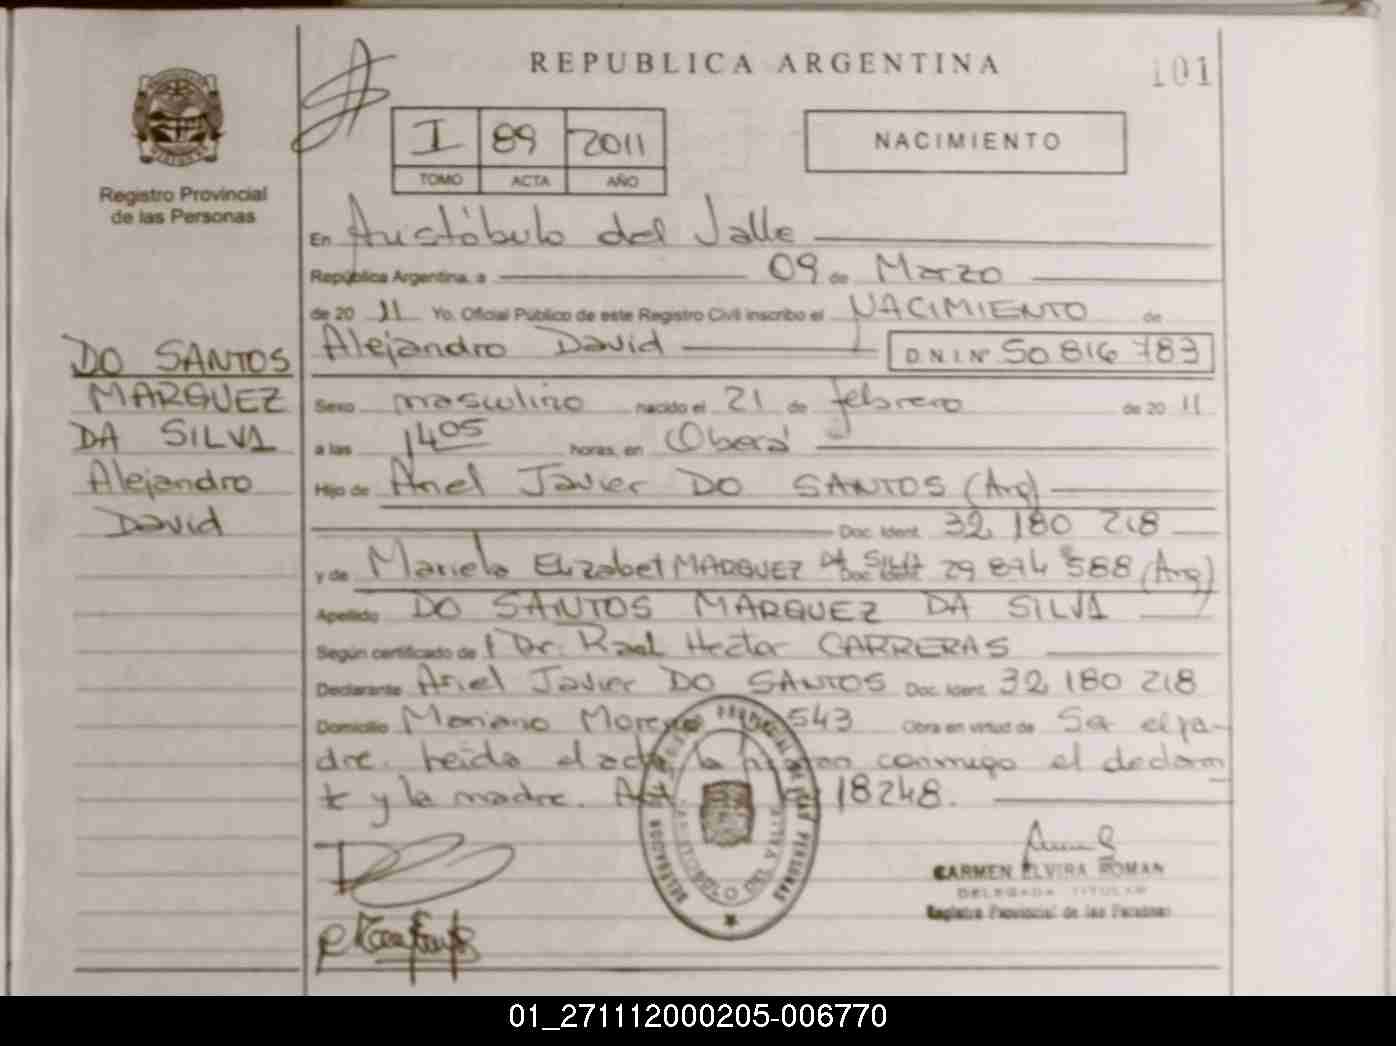 REPUBLICA ARGENTINA
101
I 89 2011
TOMO ACTA AÑO
NACIMIENTO
Registro Provincial
de las Personas
DO SANTOS
MARQUEZ
DA SILVA
Alejandro
David
En Aristóbulo del Valle
República Argentina, a 09 de Marzo
de 20 11 Yo, Oficial Público de este Registro Civil inscribo el NACIMIENTO de
Alejandro David D N I Nº 50 816 783
Sexo masculino nacido el 21 de febrero de 20 11
a las 14 05 horas, en Oberá
Hijo de Ariel Javier DO SANTOS (Arg)
Doc. Ident. 32 180 218
y de Mariela Elizabet MARQUEZ DA SILVA Doc. Ident. 29 874 588 (Arg)
Apellido DO SANTOS MARQUEZ DA SILVA
Según certificado de Dr. Raul Hector CARRERAS
Declarante Ariel Javier DO SANTOS Doc. Ident. 32 180 218
Domicilio Mariano Moreno 543 Obra en virtud de Ser el pa-
dre. Leida el acta la conmigo el declaran
te y la madre. 18248.
CARMEN ELVIRA ROMAN
DELEGADA TITULAR
Registro Provincial de las Personas
01_271112000205-006770